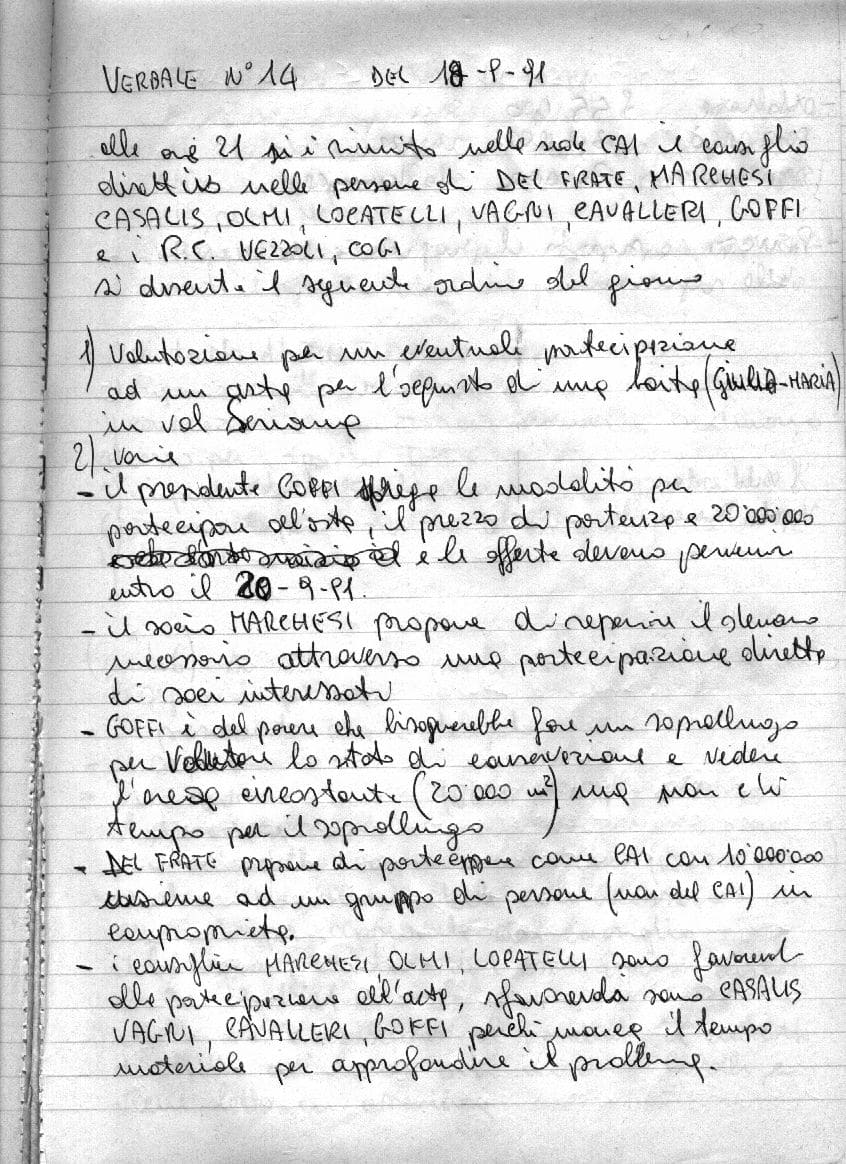 VERBALE N° 14 DEL 18-9-91
alle ore 21 si è riunito nella sede CAI il consiglio
direttivo nelle persone di DEL FRATE, MARCHESI
CASALIS, OLMI, LOCATELLI, VAGNI, CAVALLERI, GOFFI
e i R.C. VEZZOLI, COGI
si discute il seguente ordine del giorno
1) Valutazione per un eventuale partecipazione
ad un asta per l'acquisto di una baita (GIULIA-MARIA)
in val Seriana
2) Varie
- il presidente GOFFI spiega le modalità per
partecipare all'asta, il prezzo di partenza e 20'000'000
e le offerte devono pervenire
entro il 20-9-91.
- il socio MARCHESI propone di reperire il denaro
necessario attraverso una partecipazione diretta
di soci interessati
- GOFFI è del parere che bisognerebbe fare un sopralluogo
per Valutare lo stato di conservazione e vedere
l'area circostante (20'000 m²) ma non c'è
tempo per il sopralluogo
- DEL FRATE propone di partecipare come CAI con 10'000'000
insieme ad un gruppo di persone (non del CAI) in
comproprieta.
- i consiglieri MARCHESI, OLMI, LOCATELLI sono favorevoli
alla partecipazione all'asta, sfavorevoli sono CASALIS
VAGNI, CAVALLERI, GOFFI perchè manca il tempo
materiale per approfondire il problema.